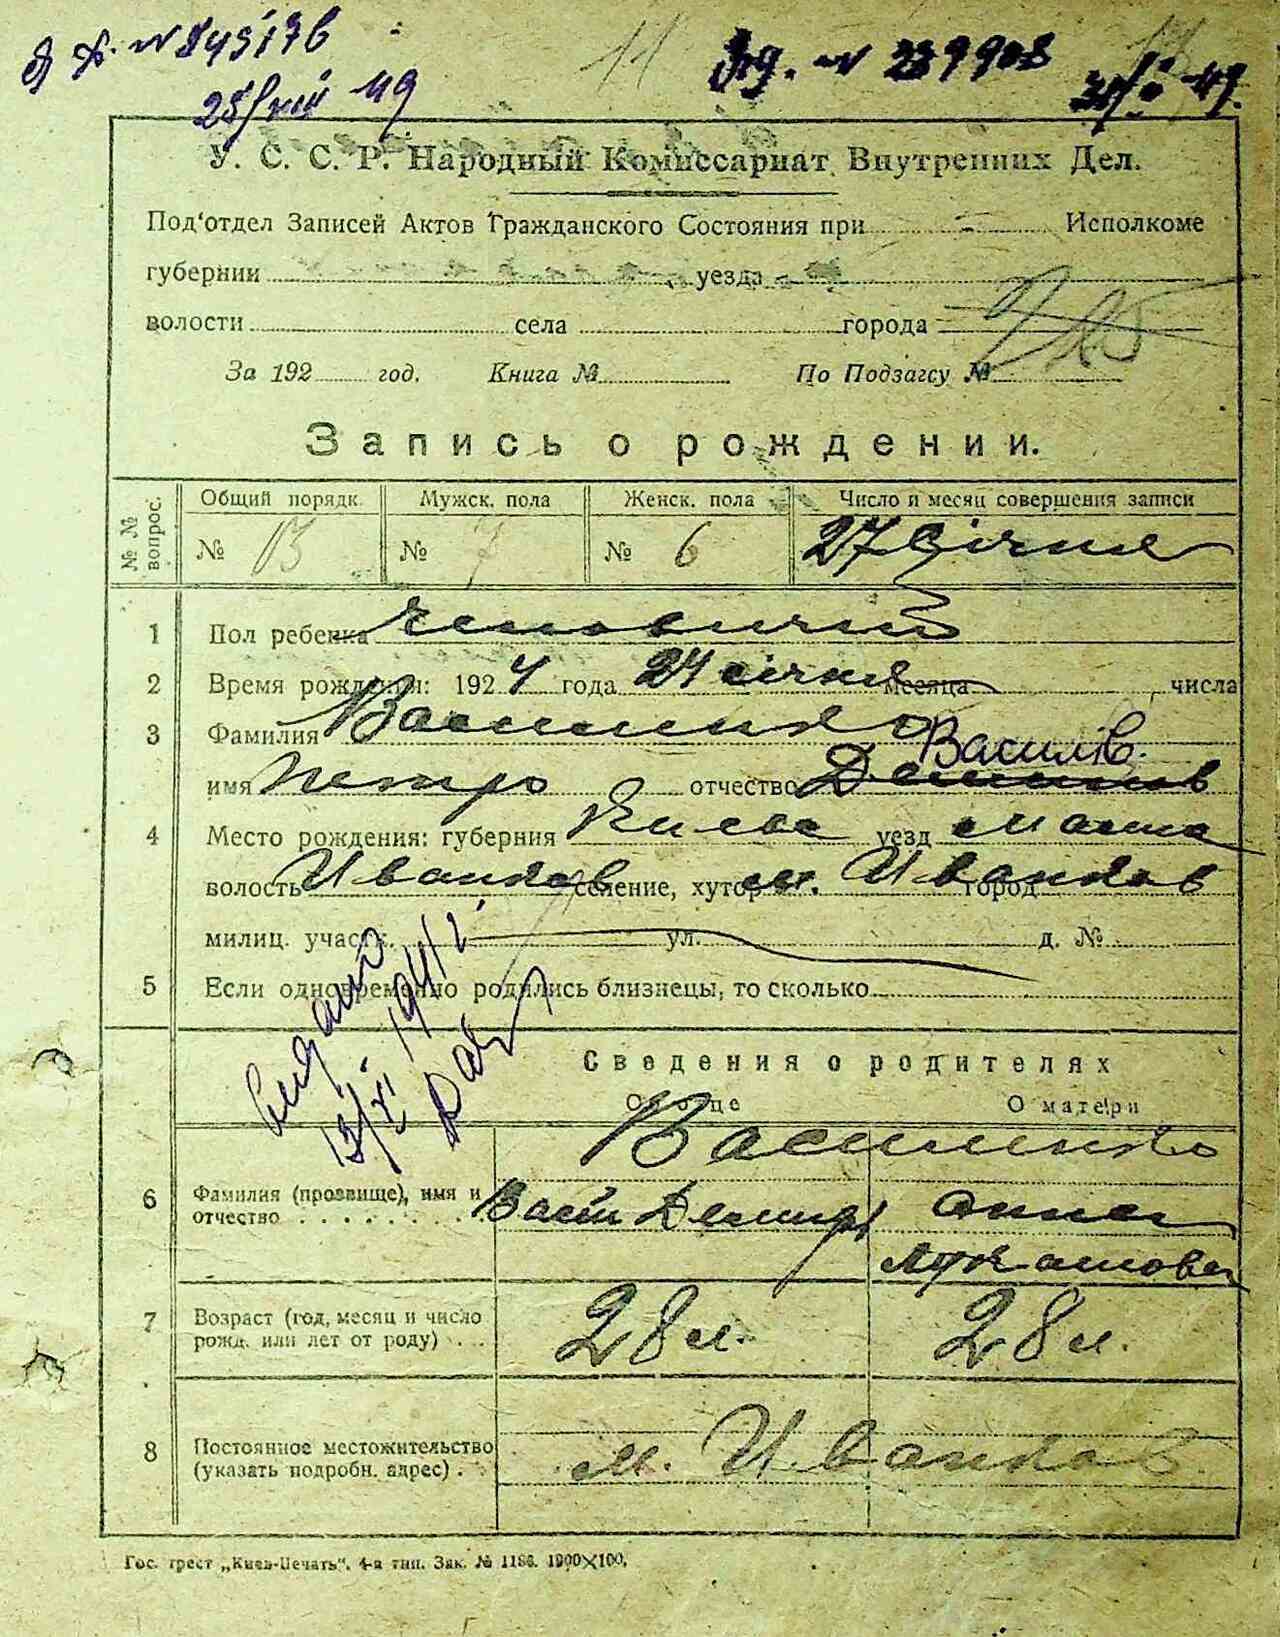 № 243176
25/VIII 49
11
№ 239908
49.
У. С. С. Р. Народный Комиссариат Внутренних Дел.
Под'отдел Записей Актов Гражданского Состояния при Исполкоме
губернии уезда
волости села города
За 192 год. Книга № По Подзагсу №
Запись о рождении.
№ № вопрос. Общий порядк. Мужск. пола Женск. пола Число и месяц совершения записи
№ 13 № 7 № 6 27 Січня
1 Пол ребенка чоловичий
2 Время рождения: 1924 года 24 січня месяца числа
3 Фамилия Василенко
Василів.
имя Петро отчество Демидов
4 Место рождения: губерния Киевс уезд
волость Иванков селение, хутор м. Иванков город
милиц. участк. ул. д. №
5 Если одновременно родились близнецы, то сколько
видано
13/XI 1941
Сведения о родителях
О отце О матери
Василенко
6 Фамилия (прозвище), имя и отчество . . . . . . . . Васил Демид Анна
Лукашова
7 Возраст (год, месяц и число рожд. или лет от роду) . . . 28 л. 28 л.
8 Постоянное местожительство (указать подробн. адрес) . м. Иванков
Гос. трест „Киев-Печать“. 4-я тип. Зак. № 1186. 1900×100.